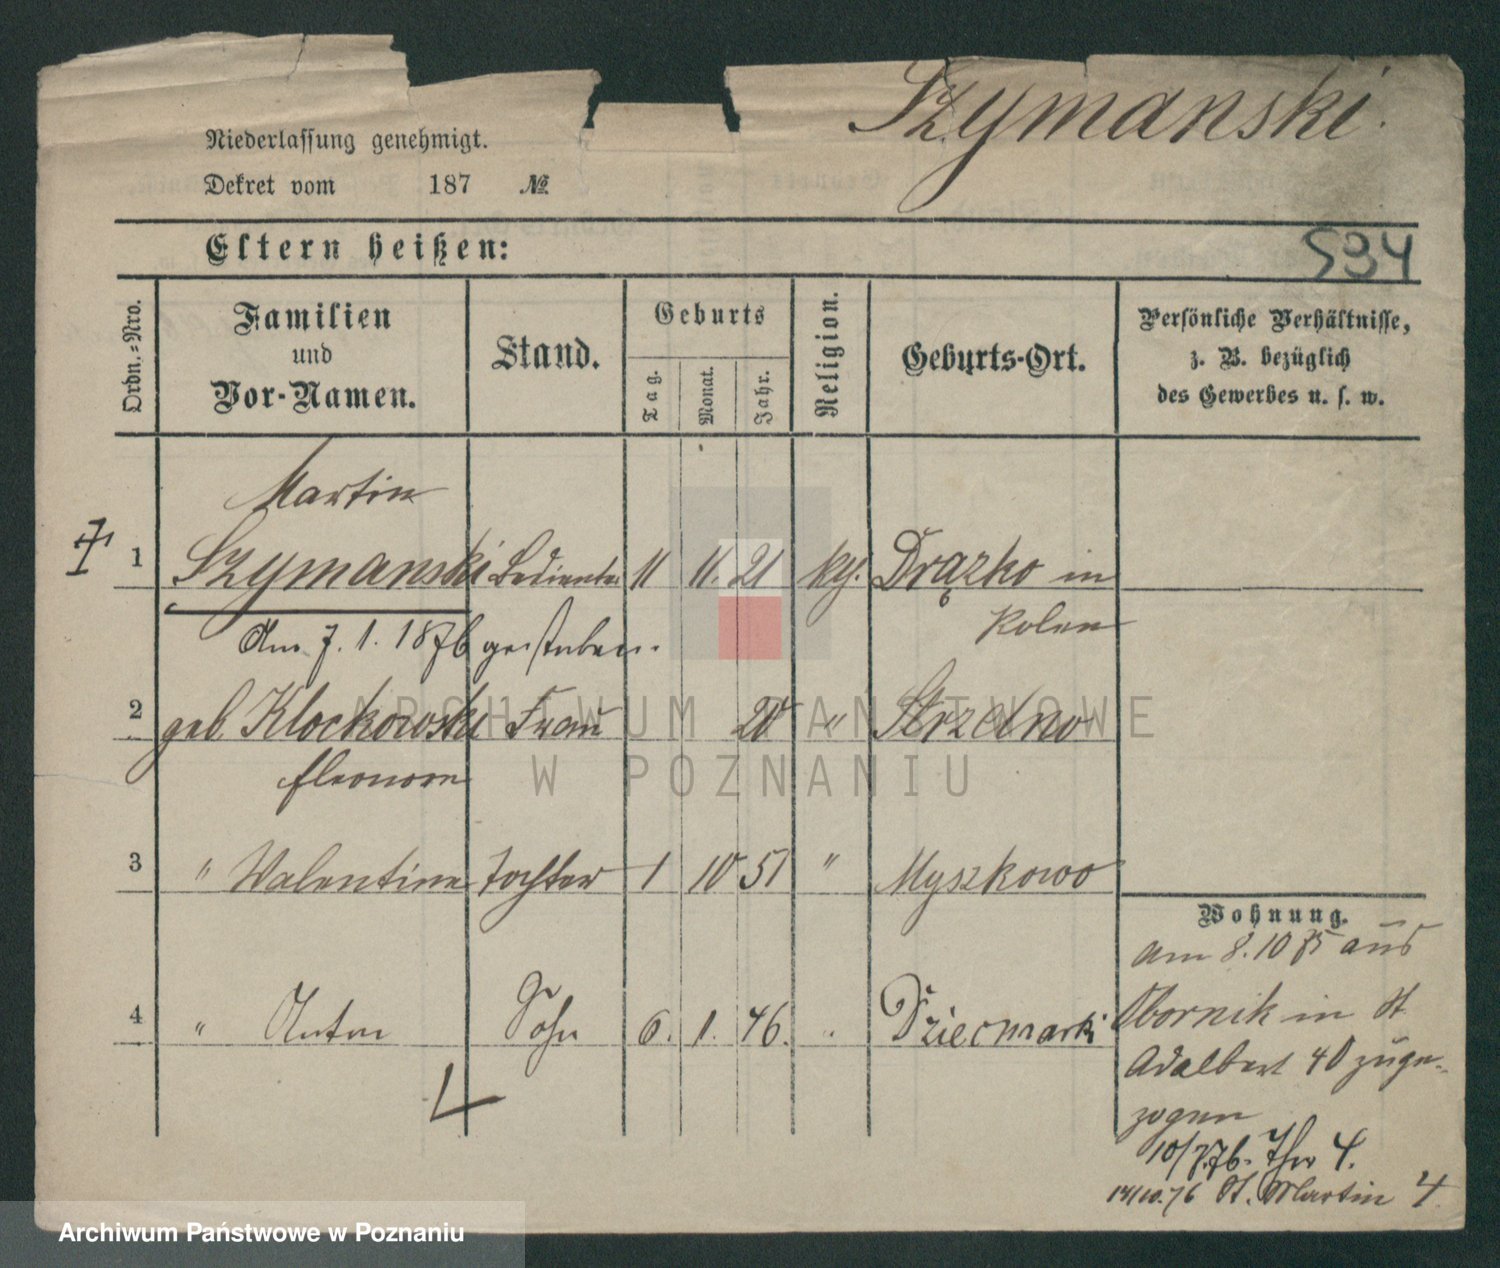 Szymanski.
Niederlassung genehmigt.
Dekret vom 187 №
Eltern heißen:
534
Ordn.-Nro.
Familien und Vor-Namen.
Stand.
Geburts
Tag.
Monat.
Jahr.
Religion.
Geburts-Ort.
Persönliche Verhältnisse,
z. B. bezüglich
des Gewerbes u. s. w.
Martin
1 Szymanski Bedienter 11 11. 21 kth. Drązko in
Polen
Am 7. 1. 1876 gestorben.
2 geb Klockowski Frau 20 " Strzelno
Eleonore
3 " Valentine Tochter 1 10 51 " Myszkowo
Wohnung.
am 8. 10 75 aus
4 " Anton Sohn 6. 1. 46. " Dziecmarki
Obornik in St
Adalbert 40 zuge-
zogen
10/7.76. 4.
14/10.76 St. Martin 4
ARCHIWUM PAŃSTWOWE
W POZNANIU
Archiwum Państwowe w Poznaniu